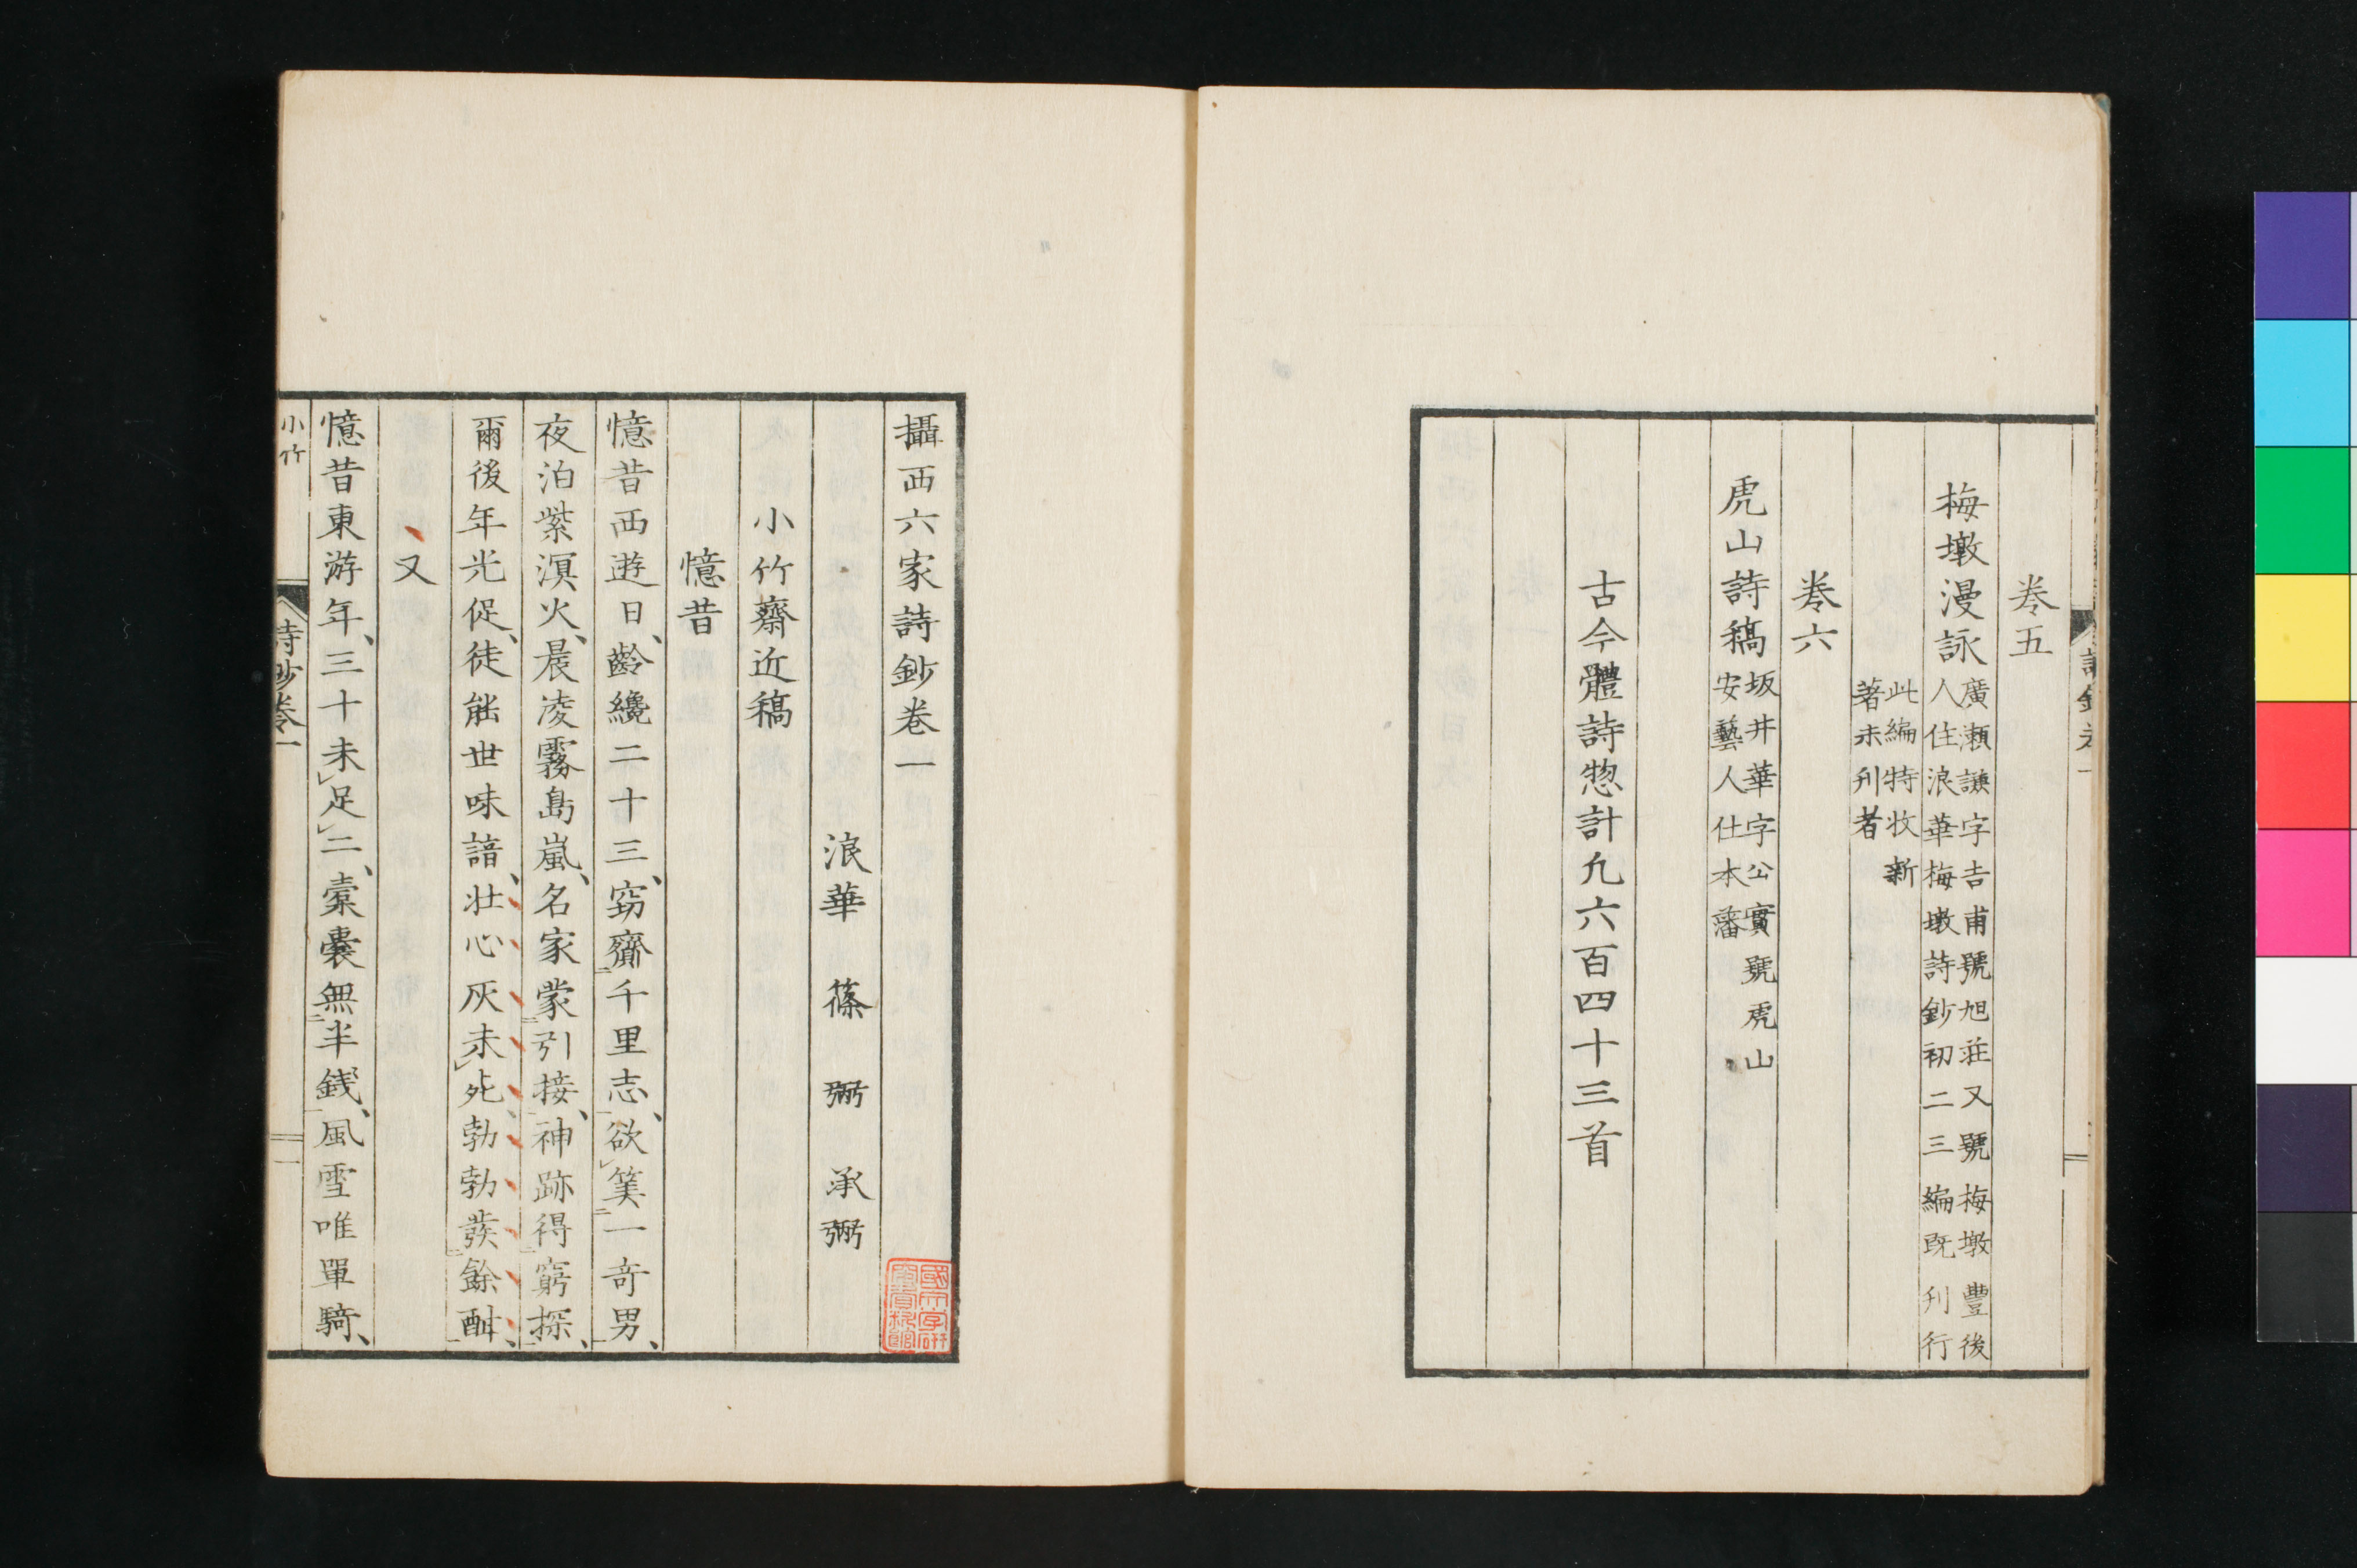 卷五
梅墩漫詠
廣瀨謙字吉甫號旭莊又號梅墩豐後
人住浪華梅墩詩鈔初二三編既刋行
此編特收新
著未刋者
卷六
虎山詩稿
坂井華字公實號虎山
安藝人仕本藩
古今體詩惣計九六百四十三首
攝西六家詩鈔卷一
浪華 篠 弼 承弼
小竹齋近稿
憶昔
憶昔西遊日、齡纔二十三、窈齎千里志、欲䇲一奇男、
夜泊紫溟火、晨凌霧島嵐、名家蒙引接、神跡得窮探、
爾後年光促、徒能世味諳、壯心灰未死、勃勃蕟餘酣、
又
憶昔東游年、三十未足二、橐囊無半錢、風雪唯單騎、
小竹
詩鈔卷一
一